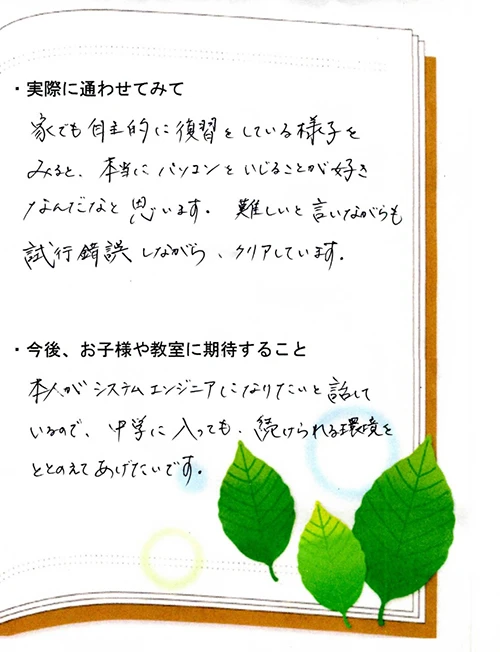 ・実際に通わせてみて
家でも自主的に復習をしている様子を
みると、本当にパソコンをいじることが好き
なんだなと思います。難しいと言いながらも
試行錯誤しながら、クリアしています。
・今後、お子様や教室に期待すること
本人がシステムエンジニアになりたいと話して
いるので、中学に入っても、続けられる環境を
ととのえてあげたいです。